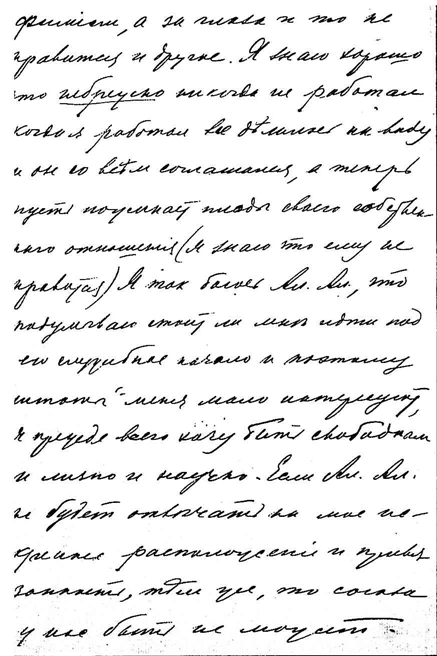 фишей, а за глаза и то не
нравится и другие. Я знаю хорошо
что небрежно никогда не работал
когда я работал все дѣлились на виду
и он со всѣм соглашался, а теперь
пусть пожинает плоды своего собствен-
ного отношенія (я знаю что ему не
нравится) Я так боюсь Ал. Ал., что
подумываю стоит ли мнѣ идти под
его служебное начало и поэтому
штаты меня мало интересуют,
я прежде всего хочу быть свободным
и лично и научно. Если Ал. Ал.
не будет отвѣчать на мое ис-
креннее расположеніе и привя
занность, тѣм же, то союза
у нас быть не может.